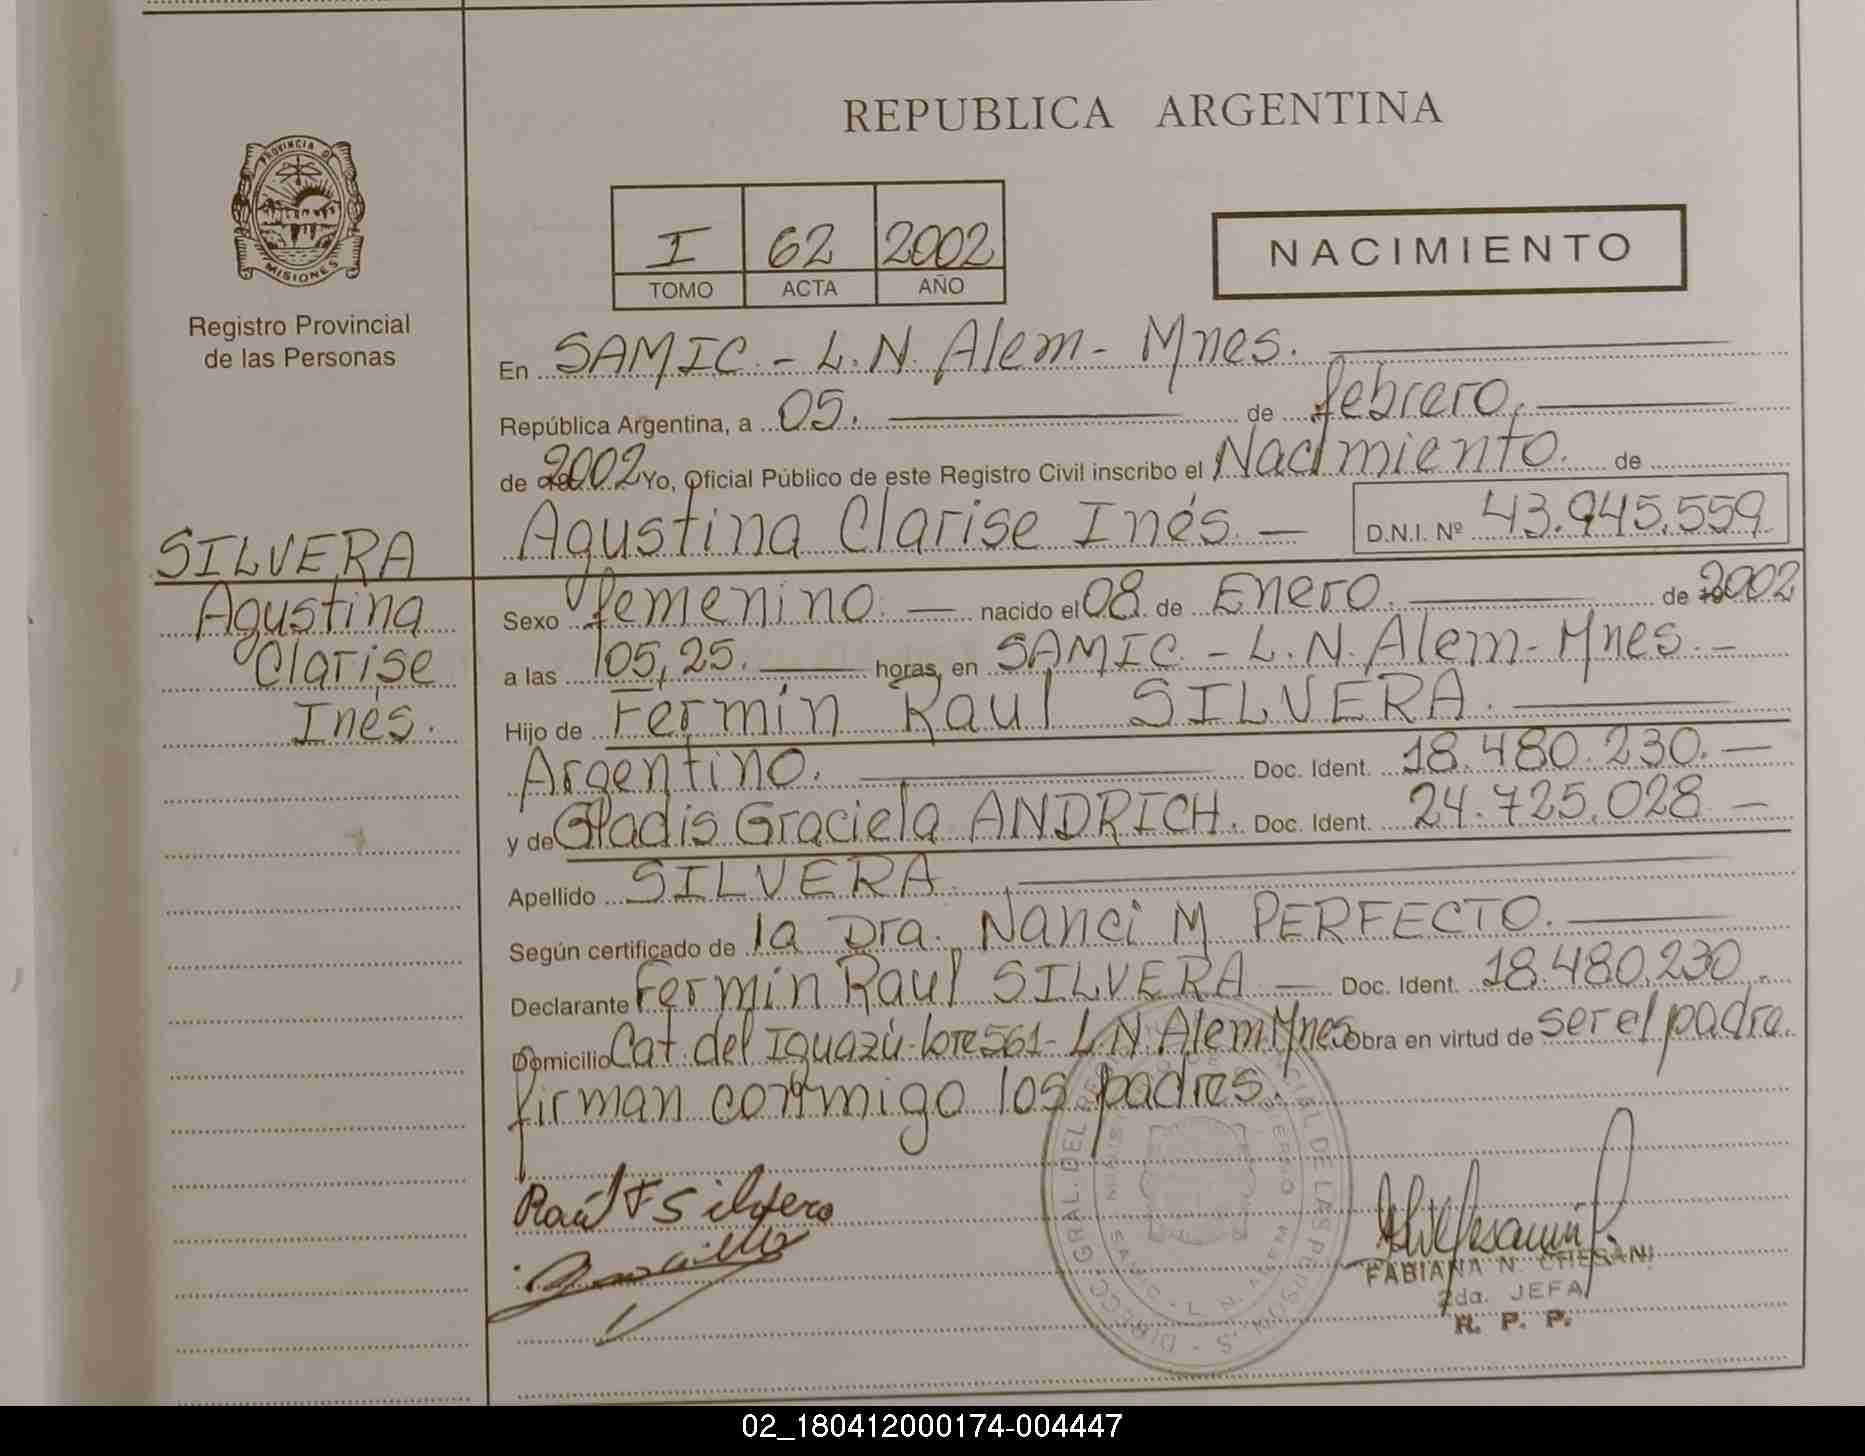 REPUBLICA ARGENTINA
PROVINCIA DE
MISIONES
Registro Provincial
de las Personas
I 62 2002
TOMO ACTA AÑO
NACIMIENTO
En SAMIC - L.N. Alem - Mnes.
República Argentina, a 05. de febrero.
de 2002 Yo, Oficial Público de este Registro Civil inscribo el Nacimiento. de
Agustina Clarise Inés. — D.N.I. Nº 43.945.559
SILVERA
Agustina
Clarise
Inés.
Sexo femenino. — nacido el 08 de Enero. de 2002
a las 05,25. horas, en SAMIC - L.N. Alem - Mnes. -
Hijo de Fermin Raul SILVERA.
Argentino. Doc. Ident. 18.480.230. —
y de Gladis Graciela ANDRICH. Doc. Ident. 24.725.028 —
Apellido SILVERA.
Según certificado de la Dra. Nanci M PERFECTO.
Declarante Fermin Raul SILVERA — Doc. Ident. 18.480.230 -
Domicilio Cat. del Iguazú - lote 561 - L.N. Alem Mnes Obra en virtud de ser el padre.
firman conmigo los padres.
Raúl F Silvera
FABIANA N. CHESANI
2da. JEFA
R. P. P.
02_180412000174-004447